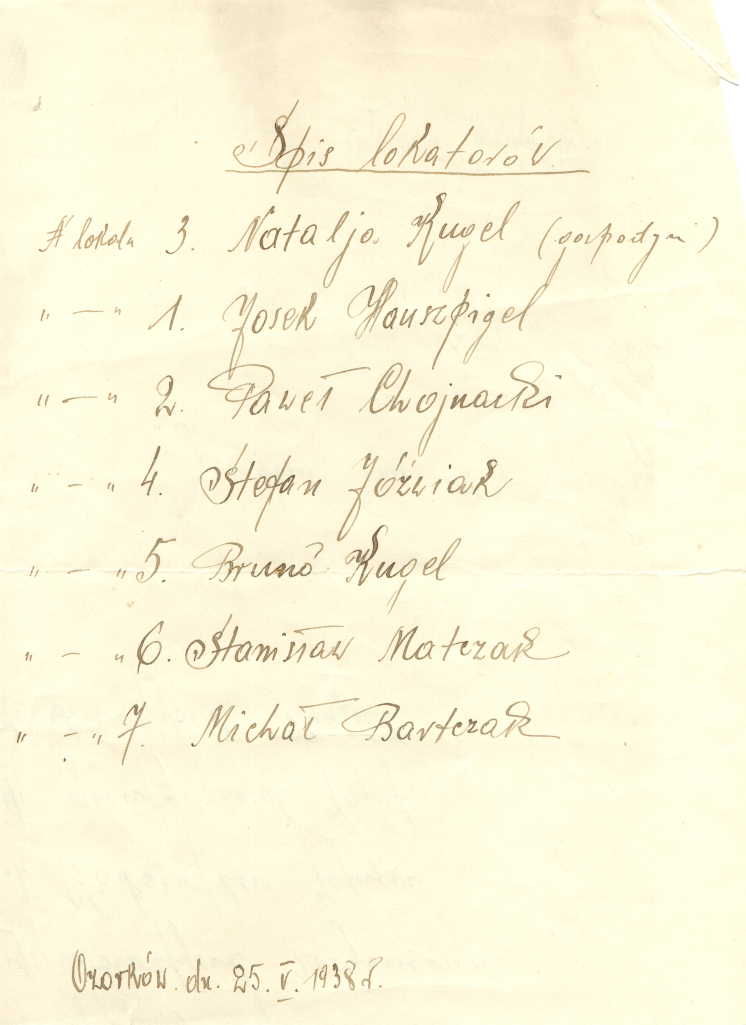 Spis lokatorów.
N lokalu 3. Natalja Kugel (gospodyni)
" — " 1. Josek Hauszpigel
" — " 2. Paweł Chojnacki
" — " 4. Stefan Jóźwiak
" — " 5. Brunó Kugel
" — " 6. Stanisław Matczak
" — " 7. Michał Bartczak
Ozorków. dn. 25. V. 1938 r.